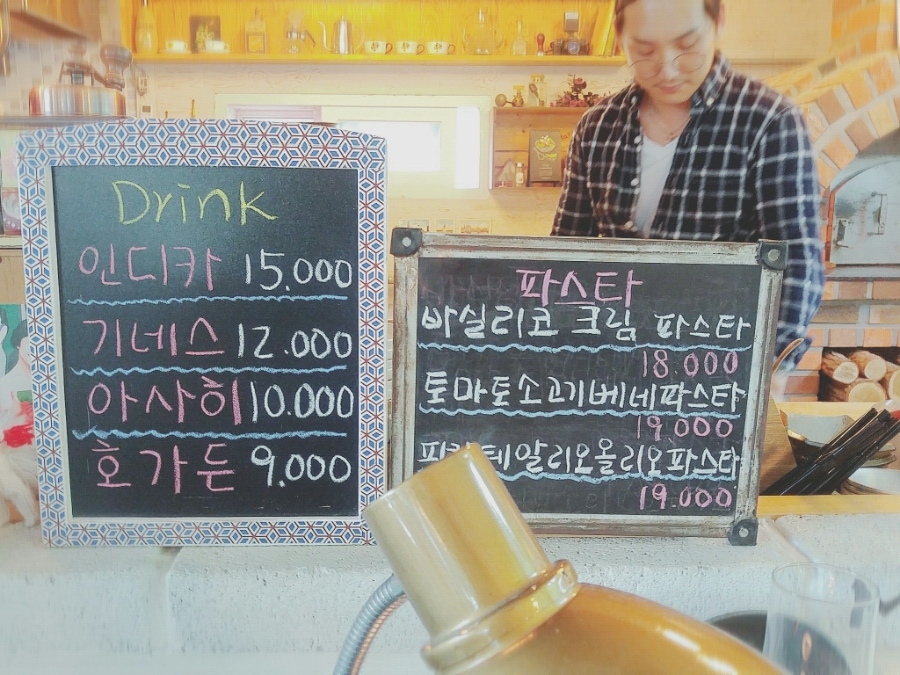 Drink
인디카 15.000
기네스 12.000
아사히 10.000
호가든 9.000
파스타
바실리코 크림 파스타
18.000
토마토소고기베네파스타
19.000
테알리오올리오파스타
19.000